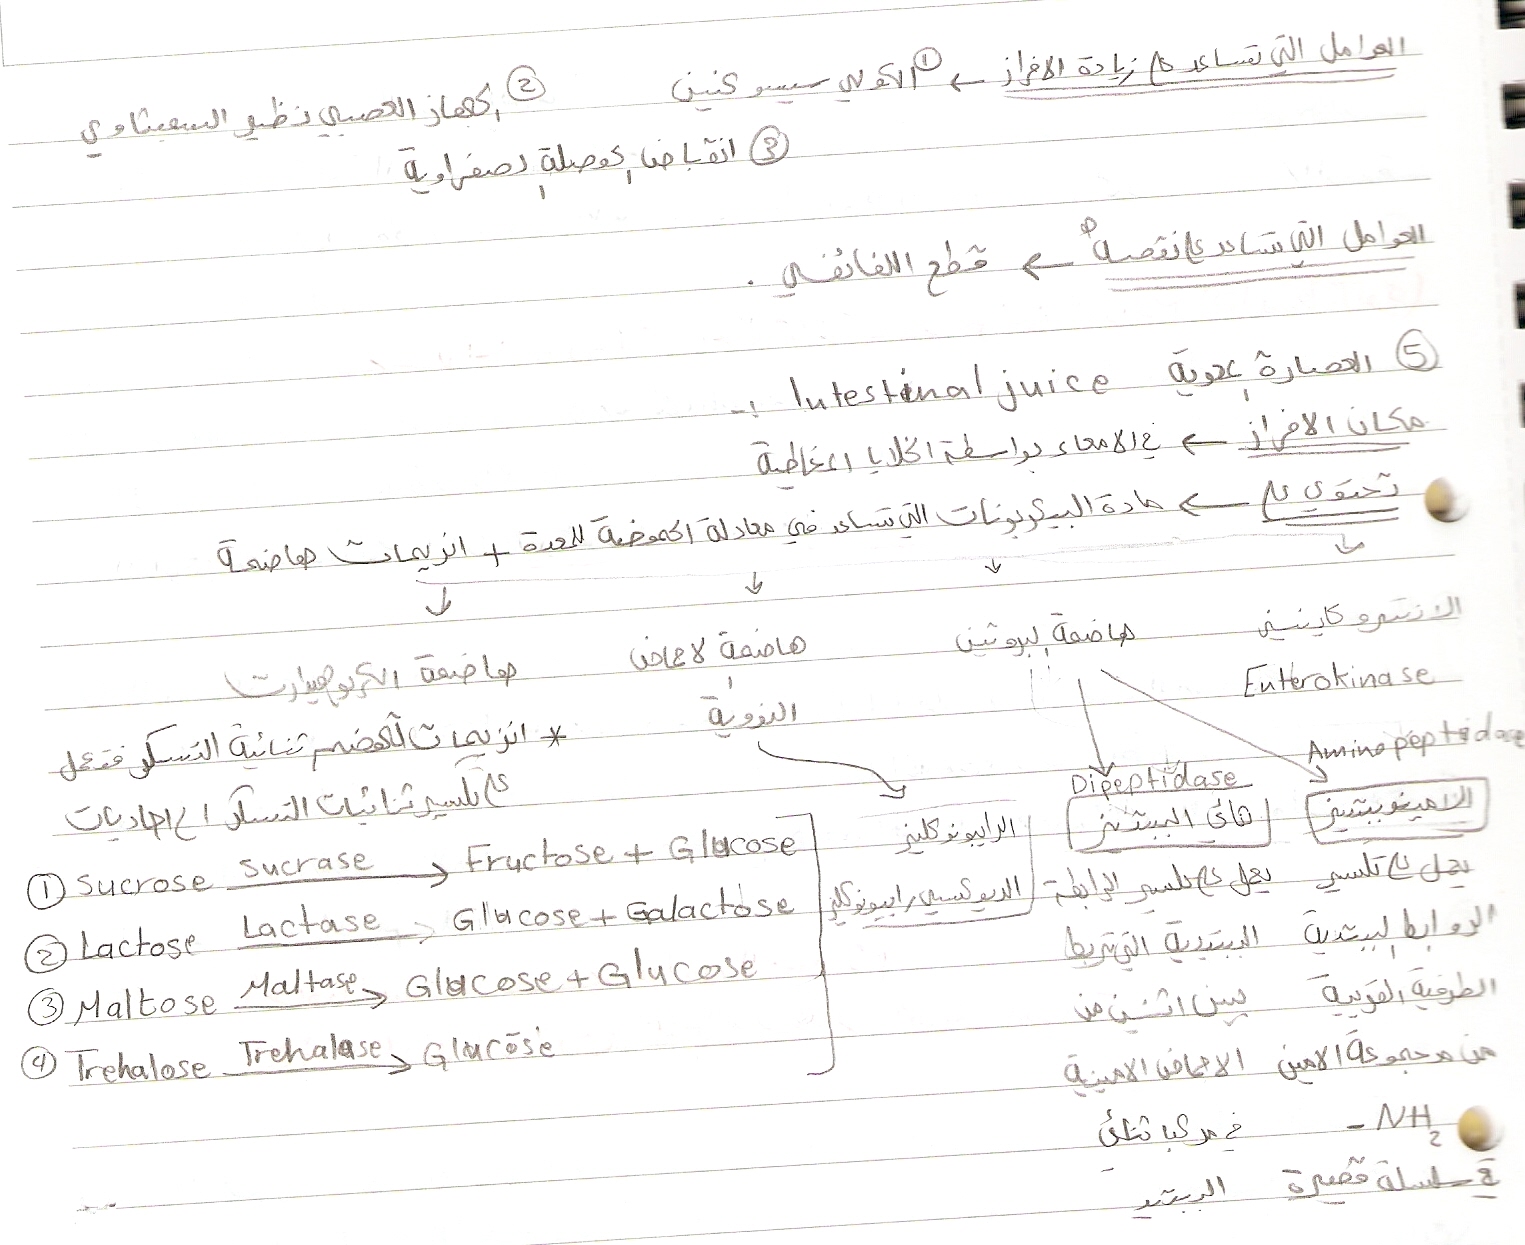 العوامل التي تساعد على زيادة الافراز ← ① الكولي سيستوكنين ② الجهاز العصبي نظير السمبثاوي
③ انقباض الحوصلة الصفراوية
العوامل التي تساعد على نقصه ← قطع اللفائفي .
⑤ العصارة المعوية Intestinal juice :-
مكان الافراز ← في الامعاء بواسطة الخلايا المخاطية
تحتوي على ← مادة البيكربونات التي تساعد في معادلة الحموضة للمعدة + انزيمات هاضمة
↓ ↓ ↓ ↓
الانتيروكاينيز
Enterokinase
هاضمة البروتين
Aminopeptidase
الامينوببتديز
يعمل على تكسير
الروابط الببتدية
الطرفية القريبة
من مجموعة الامين
- NH2
في سلسلة قصيرة
Dipeptidase
داي الببتديز
يعمل على تكسير الرابطة
الببتدية التي تربط
بين اثنين من
الاحماض الامينية
في مركب ثنائي
الببتيد
هاضمة لاحماض
النووية
الرايبونوكليز
الديوكسي رايبونوكليز
هاضمة الكربوهيدرات
* انزيمات لهضم ثنائية التسكر فتعمل
على تكسير ثنائيات التسكر الى احاديات
① Sucrose sucrase → Fructose + Glucose
② Lactose Lactase → Glucose + Galactose
③ Maltose Maltase → Glucose + Glucose
④ Trehalose Trehalase → Glucose